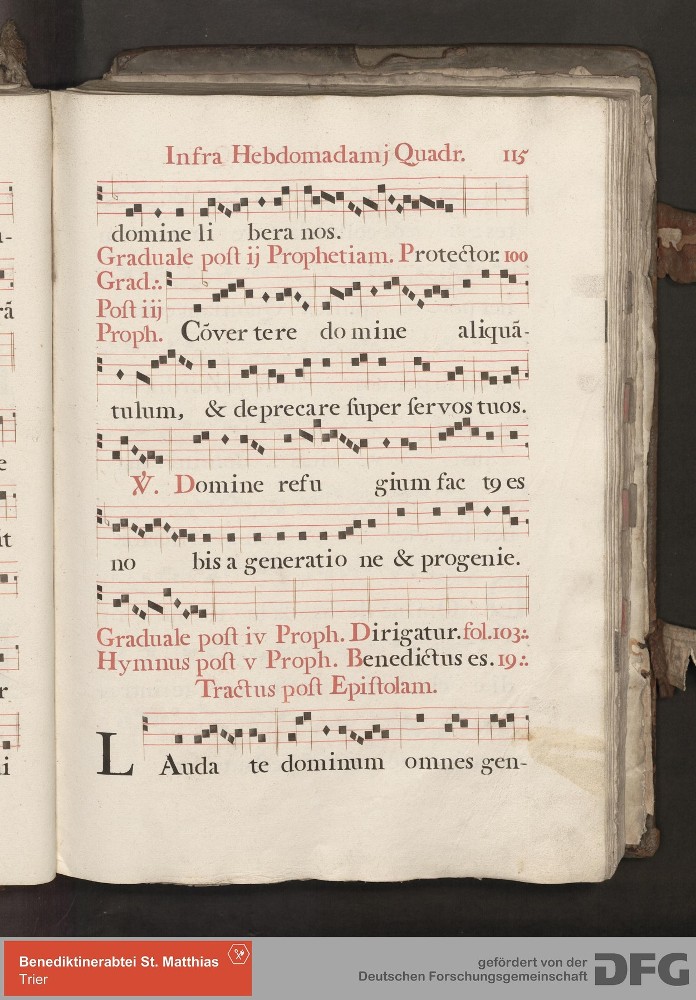 Infra Hebdomadamj Quadr. 115
domine li bera nos.
Graduale poſt ij Prophetiam. Protector. 100
Grad.
Poſt iij
Proph. Cōver tere do mine aliquā-
tulum, & deprecare ſuper ſervos tuos.
℣. Domine refu gium fac tꝯ es
no bis a generatio ne & progenie.
Graduale poſt iv Proph. Dirigatur. fol. 103.
Hymnus poſt v Proph. Benedictus es. 19.
Tractus poſt Epiſtolam.
LAuda te dominum omnes gen-
Benediktinerabtei St. Matthias
Trier
gefördert von der
Deutschen Forschungsgemeinschaft
DFG